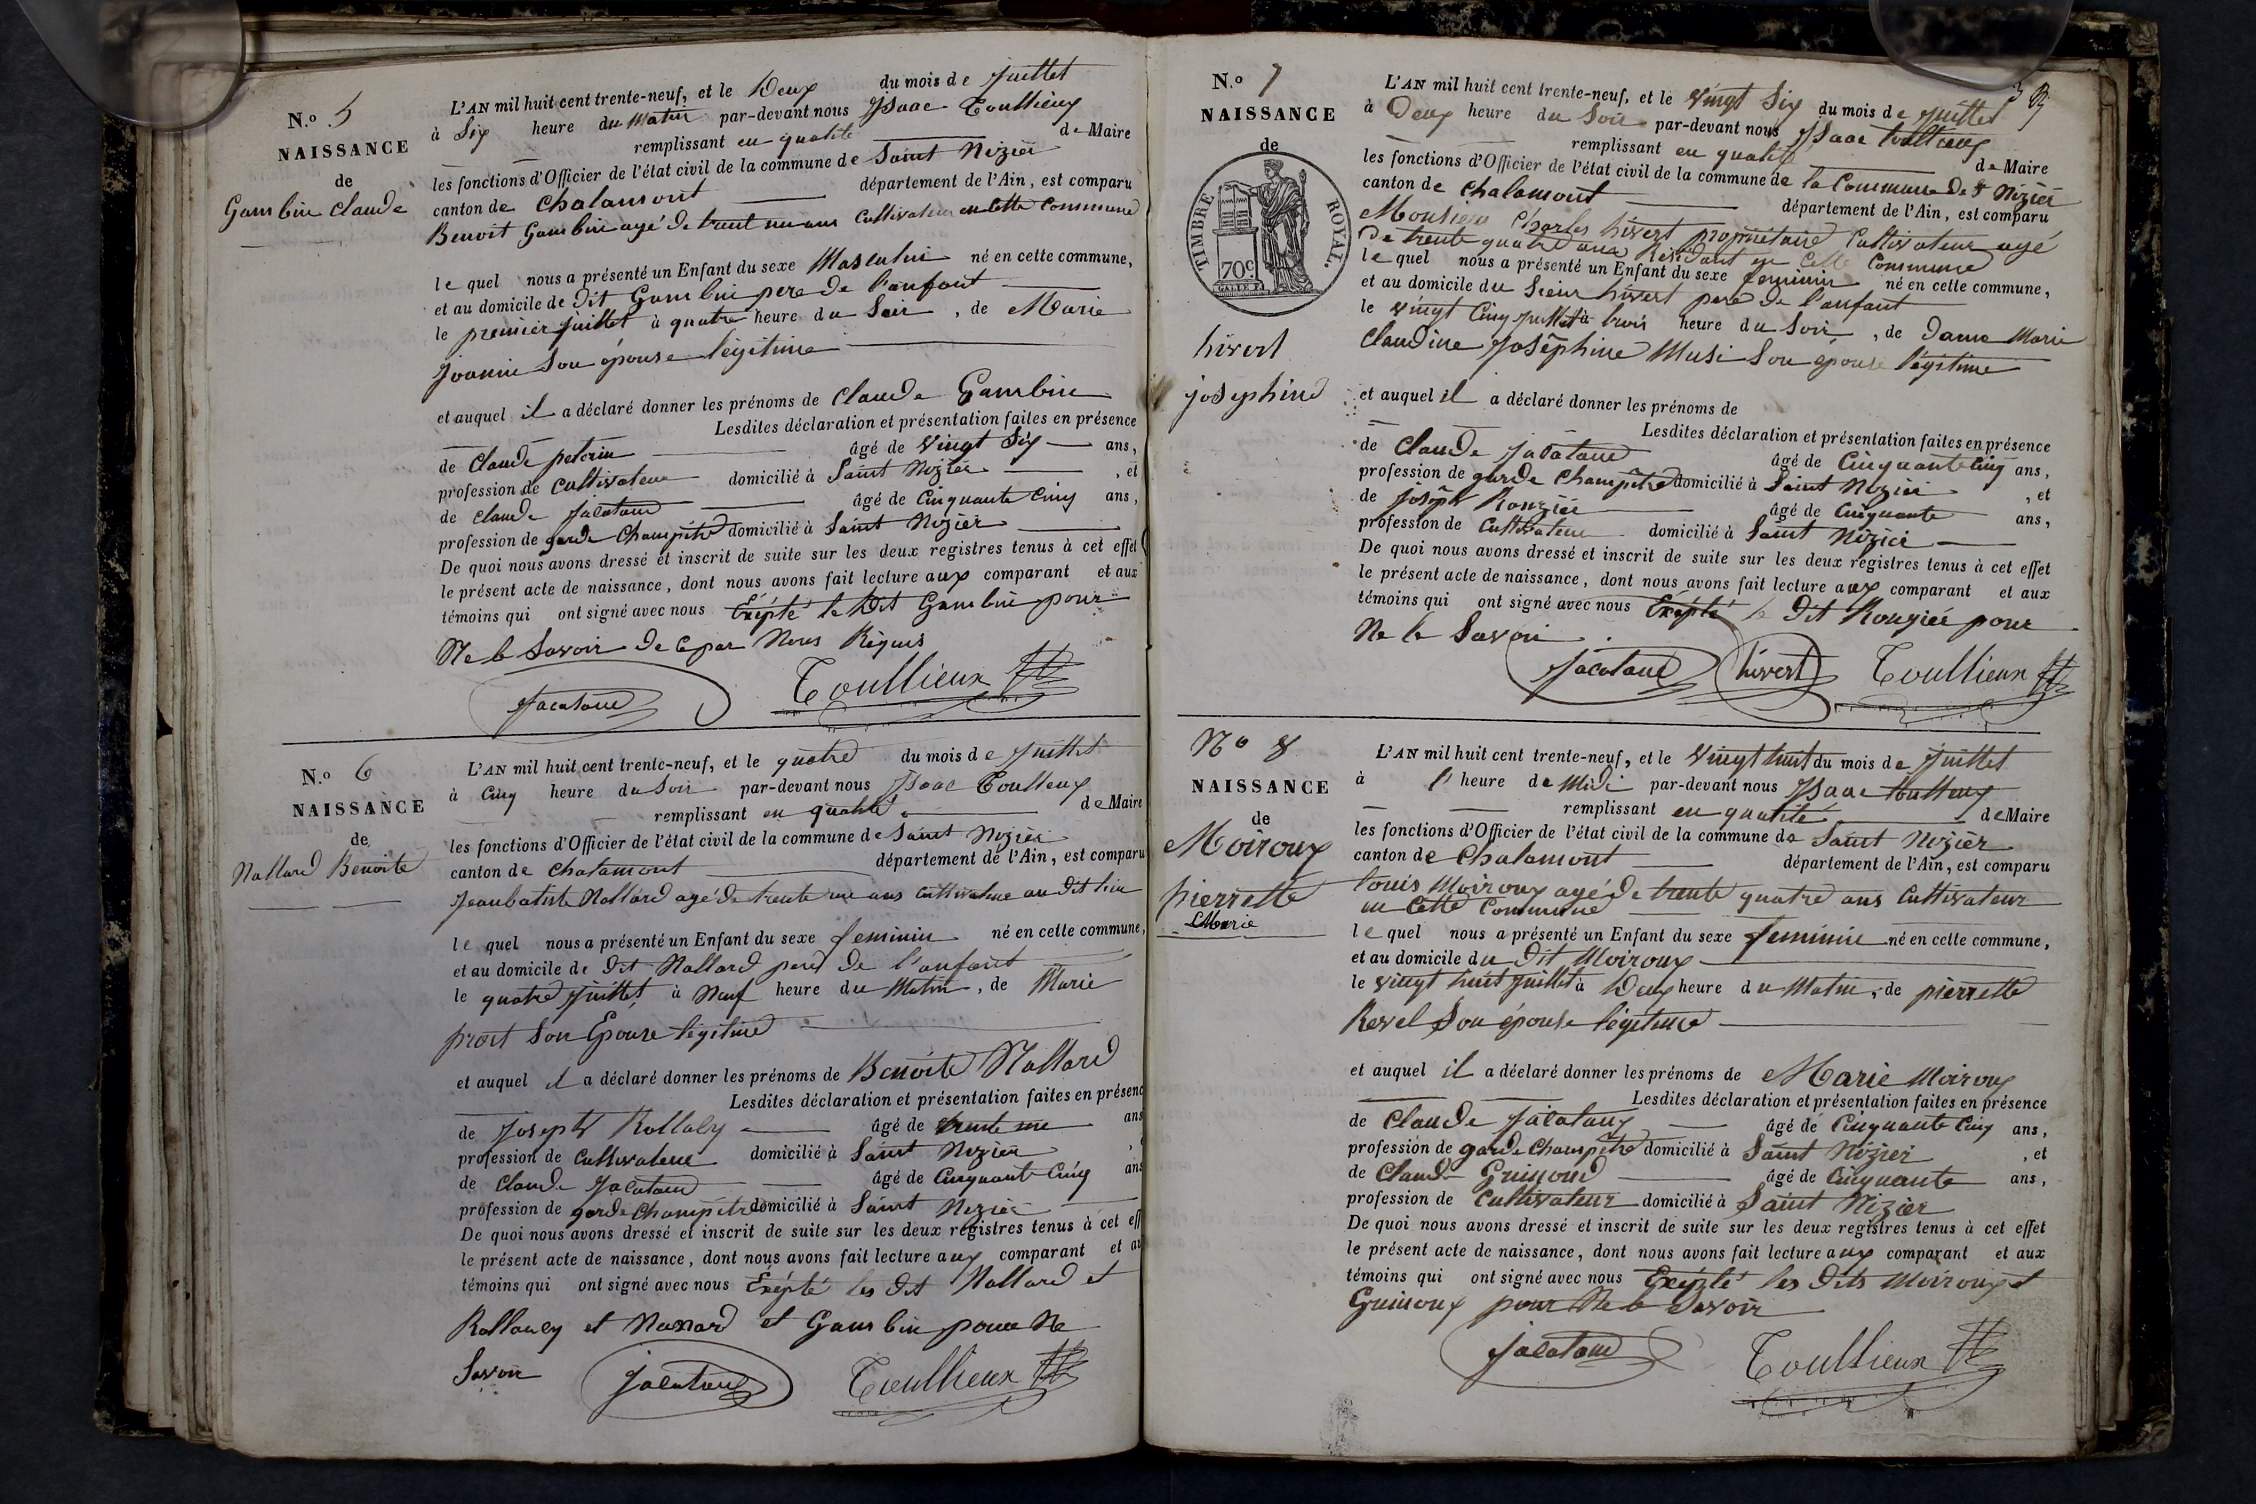 N.o 5
NAISSANCE
de
Gambin Claude
L'AN mil huit cent trente-neuf, et le Deux du mois de Juillet
à Six heure du Matin par-devant nous Isaac Toullieux
remplissant en qualité de Maire
les fonctions d'Officier de l'état civil de la commune de Saint Nizier
canton de Chalamont département de l'Ain, est comparu
Benoit Gambin agé de trent un ans Cultivateur en Cette Commune
le quel nous a présenté un Enfant du sexe Masculin né en cette commune,
et au domicile de Dit Gambin pere de l'anfant
le premier juillet à quatre heure du Soir, de Marie
Joannin Son épouse légitime
et auquel il a déclaré donner les prénoms de Claude Gambin
Lesdites déclaration et présentation faites en présence
de Claude peterin âgé de Vingt Six ans,
profession de Cultivateur domicilié à Saint Nizier, et
de Claude Jacataud âgé de Cinquante Cinq ans,
profession de garde Champêtre domicilié à Saint Nizier
De quoi nous avons dressé et inscrit de suite sur les deux registres tenus à cet effet
le présent acte de naissance, dont nous avons fait lecture aux comparant et aux
témoins qui ont signé avec nous Exépté le Dit Gambin pour
Ne le Savoir De Ce par Nous Réquis
Jacataud Toullieux
N.o 6
NAISSANCE
de
Nallard Benoite
L'AN mil huit cent trente-neuf, et le quatre du mois de Juillet
à Cinq heure du Soir par-devant nous Isaac Toullieux
remplissant en qualité de Maire
les fonctions d'Officier de l'état civil de la commune de Saint Nizier
canton de Chalamont département de l'Ain, est comparu
Jeanbatiste Nallard agé de trente un ans Cultivateur au Dit lieu
le quel nous a présenté un Enfant du sexe feminin né en cette commune,
et au domicile de Dit Nallard pere de l'anfant
le quatre Juillet à Neuf heure du Matin, de Marie
prost Son Epouse légitime
et auquel il a déclaré donner les prénoms de Benoite Nallard
Lesdites déclaration et présentation faites en présenc
de Joseph âgé de trente un ans
profession de Cultivateur domicilié à Saint Nizier,
de Claude Jacataud âgé de Cinquante Cinq ans
profession de garde Champêtre domicilié à Saint Nizier
De quoi nous avons dressé et inscrit de suite sur les deux registres tenus à cet eff
le présent acte de naissance, dont nous avons fait lecture aux comparant et au
témoins qui ont signé avec nous Exépté les Dit Nallard et
et et Gambin pour Ne
Savoir Jacataud Toullieux
N.o 7
NAISSANCE
de
TIMBRE ROYAL.
70c
hivert
josephine
L'AN mil huit cent trente-neuf, et le Vingt Six du mois de Juillet
à Deux heure du Soir par-devant nous Isaac Toullieux
remplissant en qualité de Maire
les fonctions d'Officier de l'état civil de la commune de la Commune De St Nizier
canton de Chalamont département de l'Ain, est comparu
Monsieur Charles hivert propriétaire Cultivateur agé
De trente quatre ans Résidant en Cette Commune
le quel nous a présenté un Enfant du sexe feminin né en cette commune,
et au domicile du Sieur hivert pere de l'anfant
le Vingt Cinq Juillet à trois heure du Soir, de Dame Marie
Claudine Joséphine Musi Son épouse légitime
et auquel il a déclaré donner les prénoms de
Lesdites déclaration et présentation faites en présence
de Claude Jacataud âgé de Cinquante Cinq ans,
profession de garde Champêtre domicilié à Saint Nizier, et
de Joseph Rongier âgé de Cinquante ans,
profession de Cultivateur domicilié à Saint Nizier
De quoi nous avons dressé et inscrit de suite sur les deux registres tenus à cet effet
le présent acte de naissance, dont nous avons fait lecture aux comparant et aux
témoins qui ont signé avec nous Exépté le Dit Rongier pour
Ne le Savoir.
Jacataud hivert Toullieux
No 8
NAISSANCE
de
Moiroux
pierrette
Marie
L'AN mil huit cent trente-neuf, et le Vingt huit du mois de Juillet
à l' heure de Midi par-devant nous Isaac Toullieux
remplissant en qualité de Maire
les fonctions d'Officier de l'état civil de la commune de Saint Nizier
canton de Chalamont département de l'Ain, est comparu
Louis Moiroux agé de trente quatre ans Cultivateur
en Cette Commune
le quel nous a présenté un Enfant du sexe feminin né en cette commune,
et au domicile du Dit Moiroux
le Vingt huit Juillet à Deux heure du Matin, de pierrette
Revel Son épouse légitime
et auquel il a déclaré donner les prénoms de Marie Moiroux
Lesdites déclaration et présentation faites en présence
de Claude Jacataud âgé de Cinquante Cinq ans,
profession de garde Champêtre domicilié à Saint Nizier, et
de Claude âgé de Cinquante ans,
profession de Cultivateur domicilié à Saint Nizier
De quoi nous avons dressé et inscrit de suite sur les deux registres tenus à cet effet
le présent acte de naissance, dont nous avons fait lecture aux comparant et aux
témoins qui ont signé avec nous Exépté les Dits Moiroux et
pour Ne le Savoir
Jacataud Toullieux